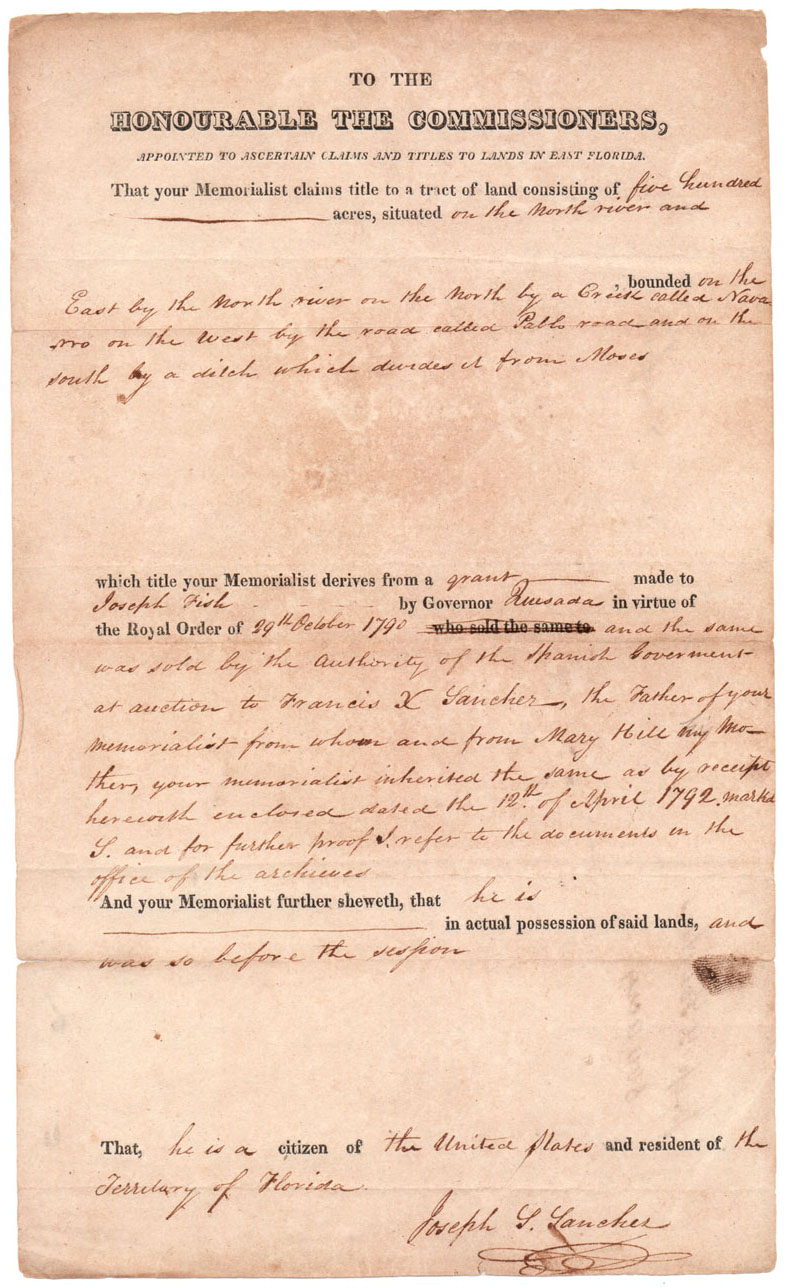 TO THE
HONOURABLE THE COMMISSIONERS,
APPOINTED TO ASCERTAIN CLAIMS AND TITLES TO LANDS IN EAST FLORIDA.
That your Memorialist claims title to a tract of land consisting of five hundred
acres, situated on the North river and
, bounded on the
East by the North river on the North by a Creek called Nava
rro on the West by the road called Pablo road and on the
south by a ditch which divides it from Moses
which title your Memorialist derives from a grant made to
Joseph Fish by Governor Quesada in virtue of
the Royal Order of 29th October 1790 who sold the same to and the same
was sold by the Authority of the Spanish Goverment
at auction to Francis X Sanchez, the Father of your
memorialist from whom and from Mary Hill my Mo-
ther, your memorialist inherited the same as by receipt
herewith enclosed dated the 12th. of April 1792 marked
S. and for further proof I refer to the documents in the
office of the archieves
And your Memorialist further sheweth, that he is
in actual possession of said lands, and
was so before the session
That, he is a citizen of the United States and resident of the
Territory of Florida.
Joseph S. Sanchez